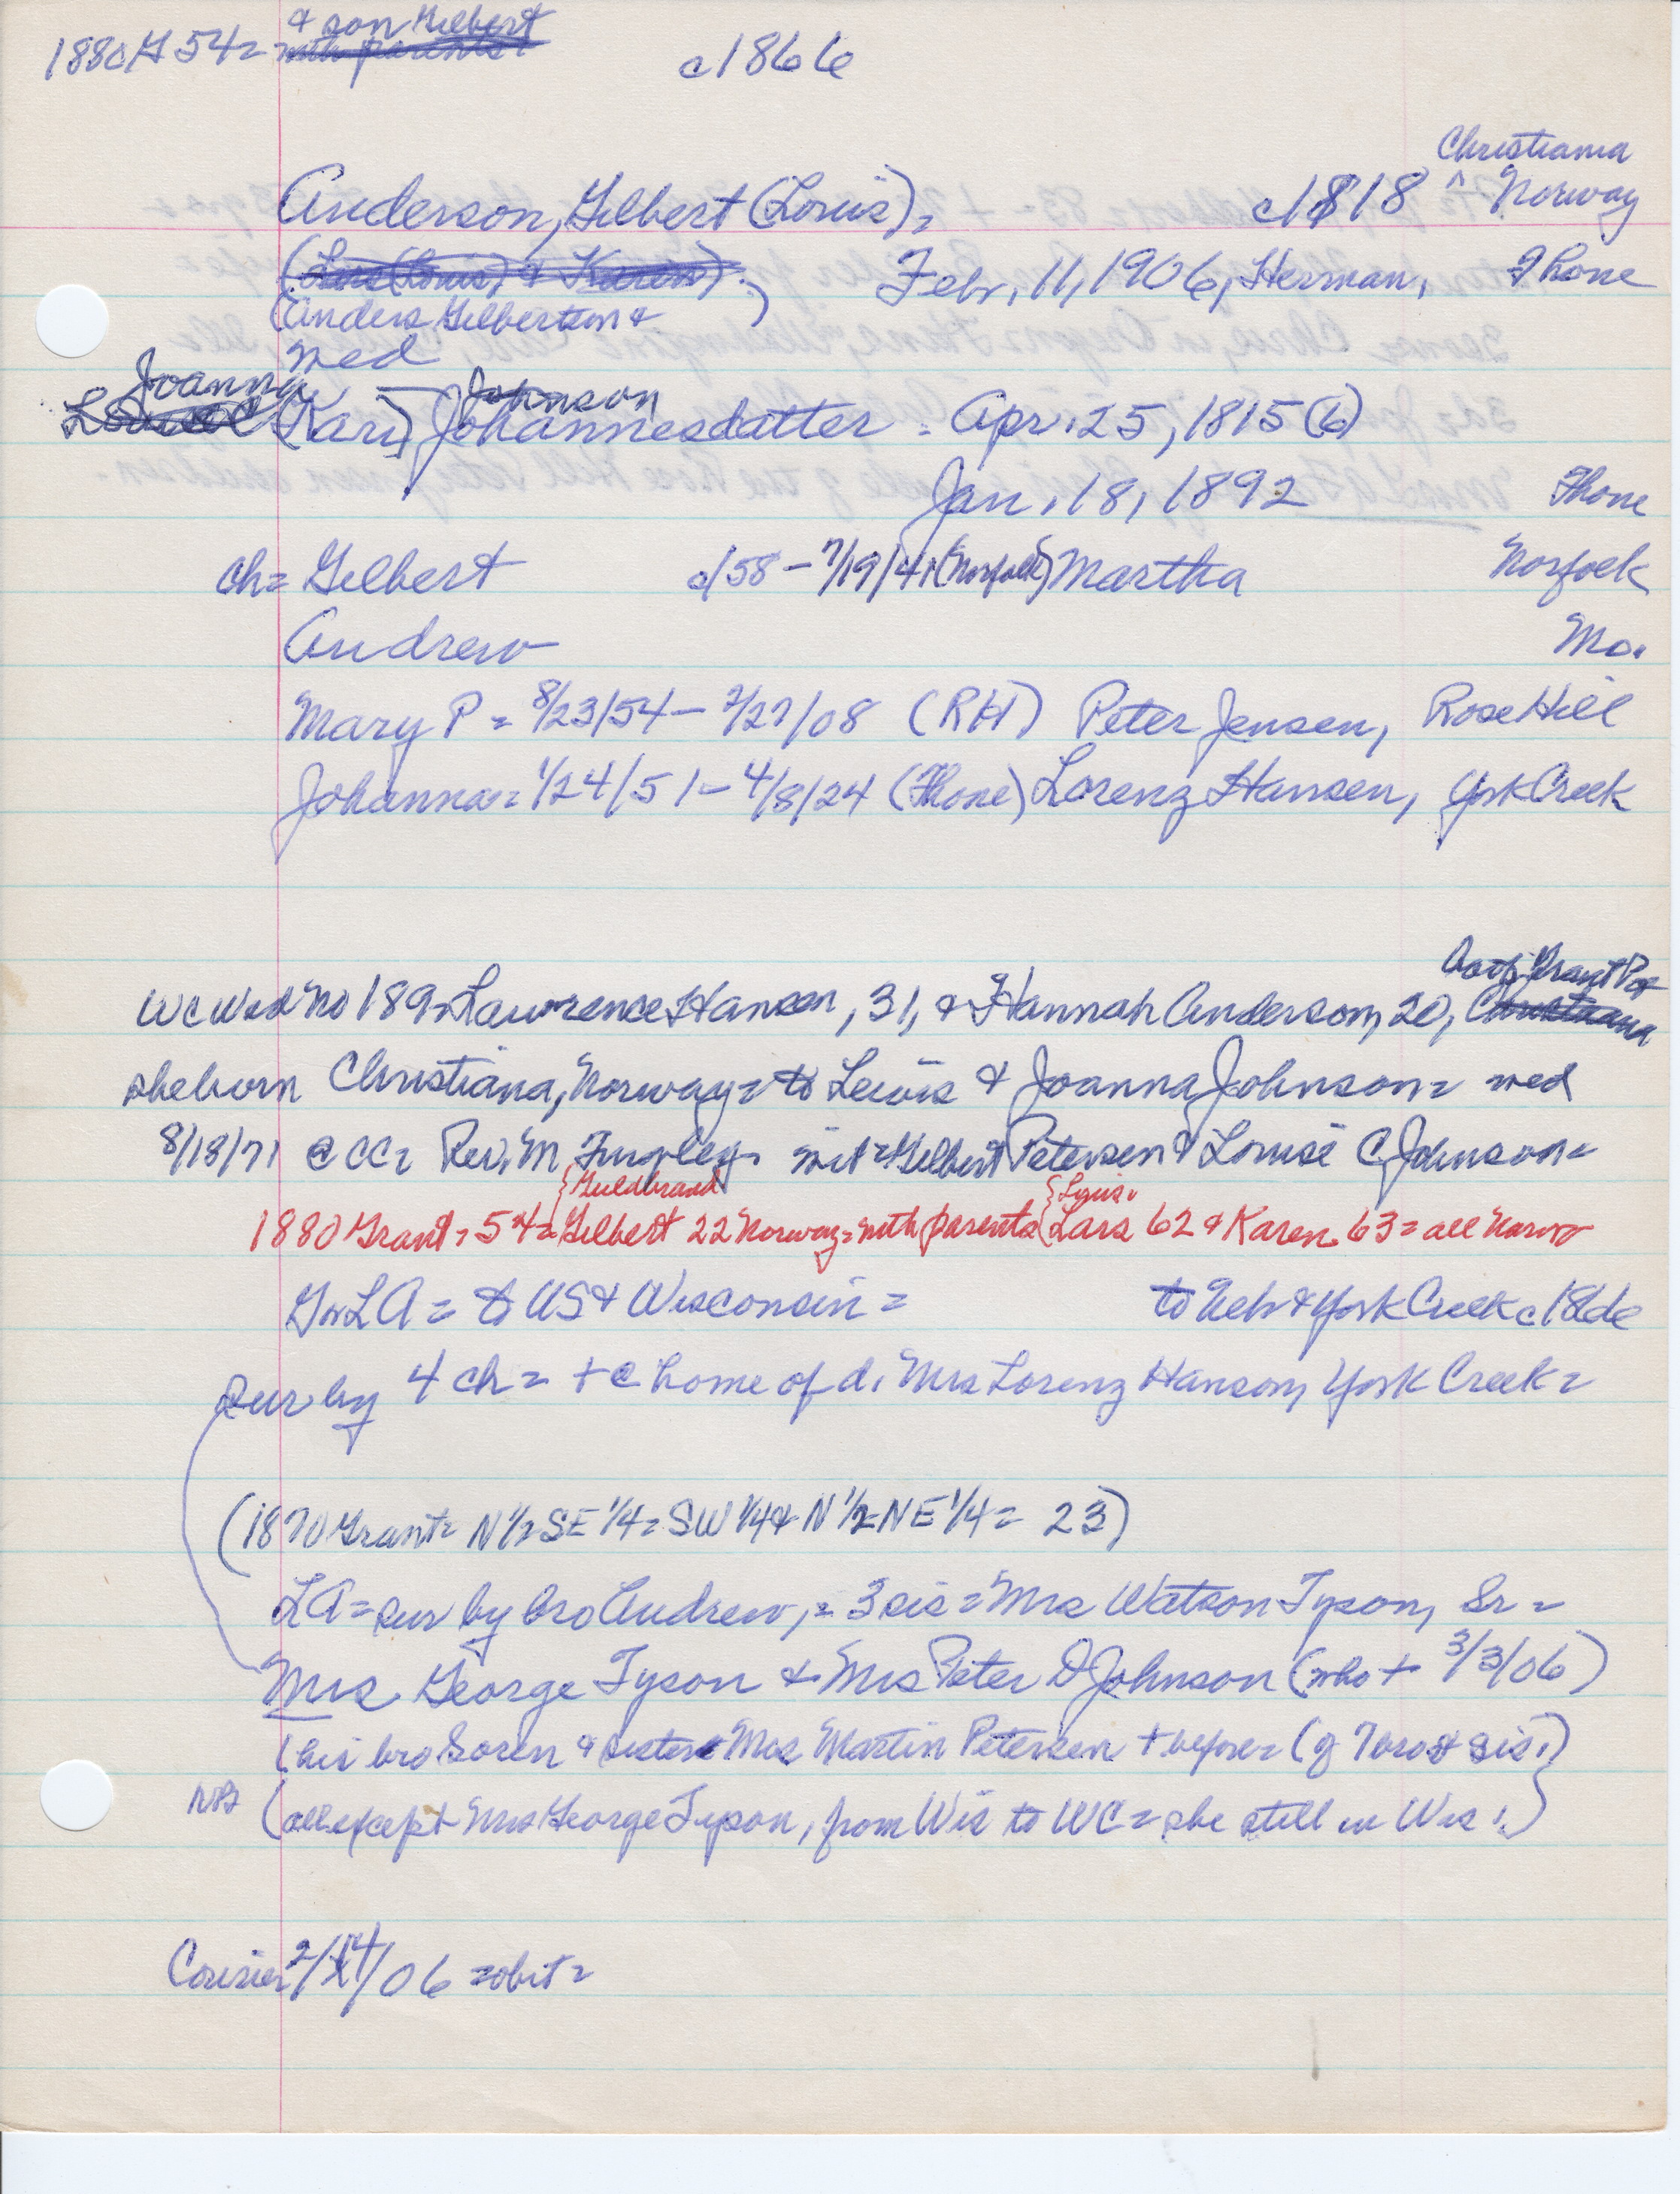 & son Gilbert
1880 G 54= with parents
c1866
Christiania
Anderson, Gilbert (Louis), c1818 ^ Norway
(Lars (Louis) & Karen) Febr, 11, 1906, Herman, Fhone
(Anders Gilbertson & )
wed
Joanna Johnson
(Kari) Johannesdatter = Apr. 25, 1815 (6)
Jan. 18, 1892 Fhone
ch= Gilbert c/58 – 7/19/41 (Norfolk) Martha Norfolk
Andrew Mo.
Mary P = 8/23/54 – 2/27/08 (RH) Peter Jensen, Rose Hill
Johanna= 1/24/51 – 4/8/24 (Fhone) Lorenz Hansen, York Creek
Grant Pct
WC Wed No 189= Lawrence Hansen, 31, & Hannah Anderson, 20, Christiana
she born Christiana, Norway= to Lewis & Joanna Johnson= wed
8/18/71 @ CC= Rev. M wit= Gilbert Petersen & Louise C Johnson=
{Guldbrand {Lous.
1880 Grant= 54= Gilbert 22 Norway= with parents Lars 62 & Karen 63= all Norw
G or LA = to US & Wisconsin = to Neb & York Creek c18
sur by 4 ch = + @ home of d. Mrs Lorenz Hanson, York Creek =
(1870 Grant= N 1/2 SE 1/4= SW 1/4 & N 1/2 NE 1/4 = 23)
LA= sur by bro Andrew, = 3 sis = Mrs Watson Tyson, Sr =
Mrs George Tyson & Mrs Peter D Johnson (who + 3/3/06)
(his bro Soren & sister Mrs Martin Petersen + before= (of 7 bro & sis.)
(all except Mrs George Tyson, from Wis to WC= she still in Wis.)
Courier 2/14/06 =obit=